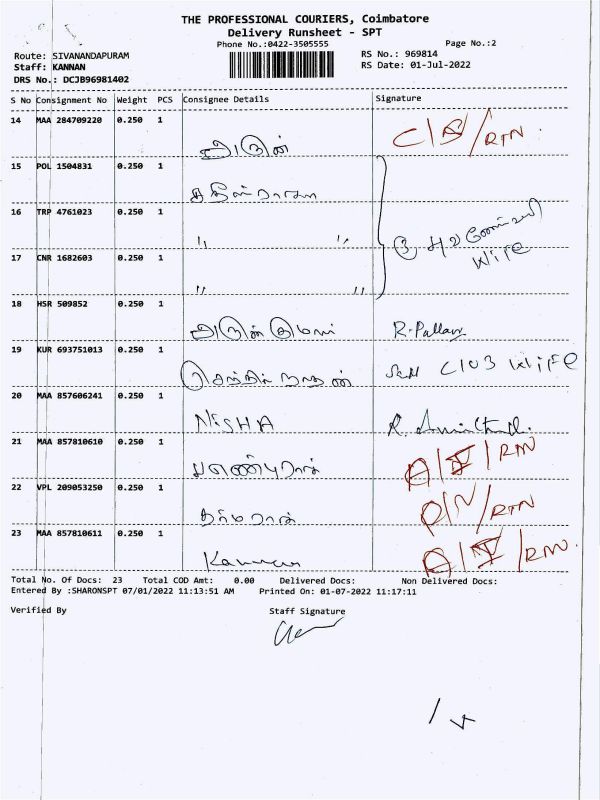 THE PROFESSIONAL COURIERS, Coimbatore
Delivery Runsheet - SPT
Phone No.:0422-3505555
Page No.:2
Route: SIVANANDAPURAM
RS No.: 969814
Staff: KANNAN
RS Date: 01-Jul-2022
DRS No.: DCJB96981402
S No Consignment No Weight PCS Consignee Details Signature
14 MAA 284709220 0.250 1
அருண் C/S/RTN
15 POL 1504831 0.250 1
16 TRP 4761023 0.250 1
" "
Wife
17 CNR 1682603 0.250 1
" "
18 HSR 509852 0.250 1
R. Pallavy
19 KUR 693751013 0.250 1
WIFE
20 MAA 857606241 0.250 1
NISHA
21 MAA 857810610 0.250 1
RTN
22 VPL 209053250 0.250 1
RTN
23 MAA 857810611 0.250 1
RTN
Total No. Of Docs: 23 Total COD Amt: 0.00 Delivered Docs: Non Delivered Docs:
Entered By :SHARONSPT 07/01/2022 11:13:51 AM Printed On: 01-07-2022 11:17:11
Verified By Staff Signature